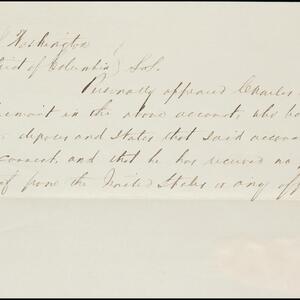 Washington
of Columbia) Sst.
Personally appeared Charles
in the above account, who
deposes and states that said accou
correct, and that he has received no
of from the United States or any off